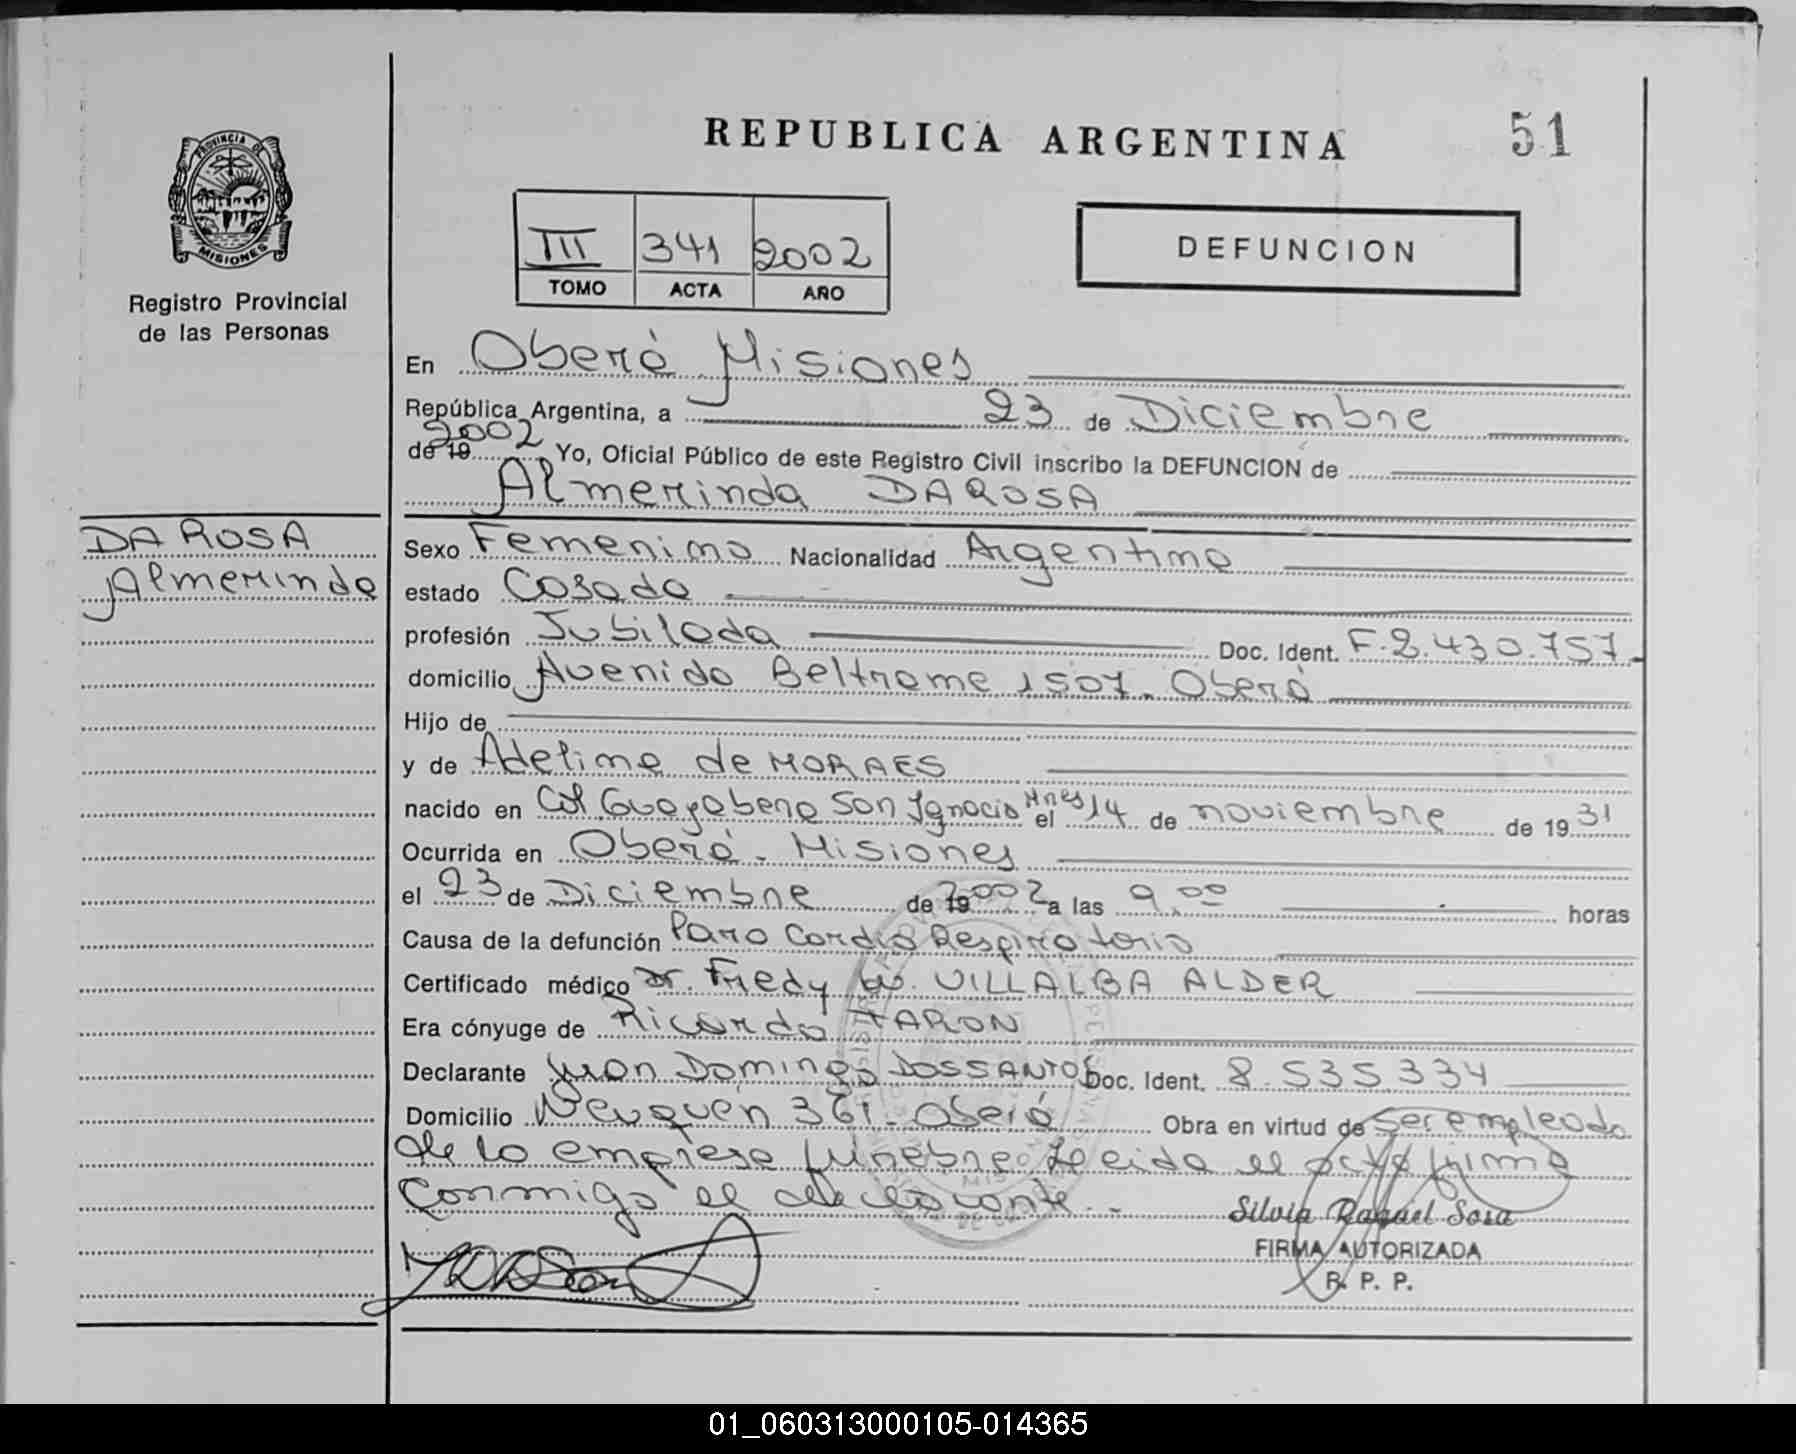 REPUBLICA ARGENTINA
51
PROVINCIA DE
MISIONES
Registro Provincial
de las Personas
III 341 2002
TOMO ACTA AÑO
DEFUNCION
En Oberá Misiones
República Argentina, a 23 de Diciembre
de 19 2002 Yo, Oficial Público de este Registro Civil inscribo la DEFUNCION de
Almerinda DAROSA
DA ROSA
Almerinda
Sexo Femenino Nacionalidad Argentina
estado Casada
profesión Jubilada Doc. Ident. F.2.430.757.
domicilio Avenida Beltrame 1507. Oberá
Hijo de
y de Adelina de MORAES
nacido en Col. Guayabera San Ignacio Mnes el 14 de noviembre de 19 31
Ocurrida en Oberá. Misiones
el 23 de Diciembre de 19 2002 a las 9,00 horas
Causa de la defunción Paro Cardio Respiratorio
Certificado médico Dr. Fredy VILLALBA ALDER
Era cónyuge de Ricardo TARON
Declarante Juan Domingo DOSSANTOS Doc. Ident. 8.535.334
Domicilio Neuquén 361. Oberá Obra en virtud de ser empleado
de la empresa fúnebre. Leida el acta firma
conmigo el declarante.-
Silvia Raquel Sosa
FIRMA AUTORIZADA
R. P. P.
01_060313000105-014365